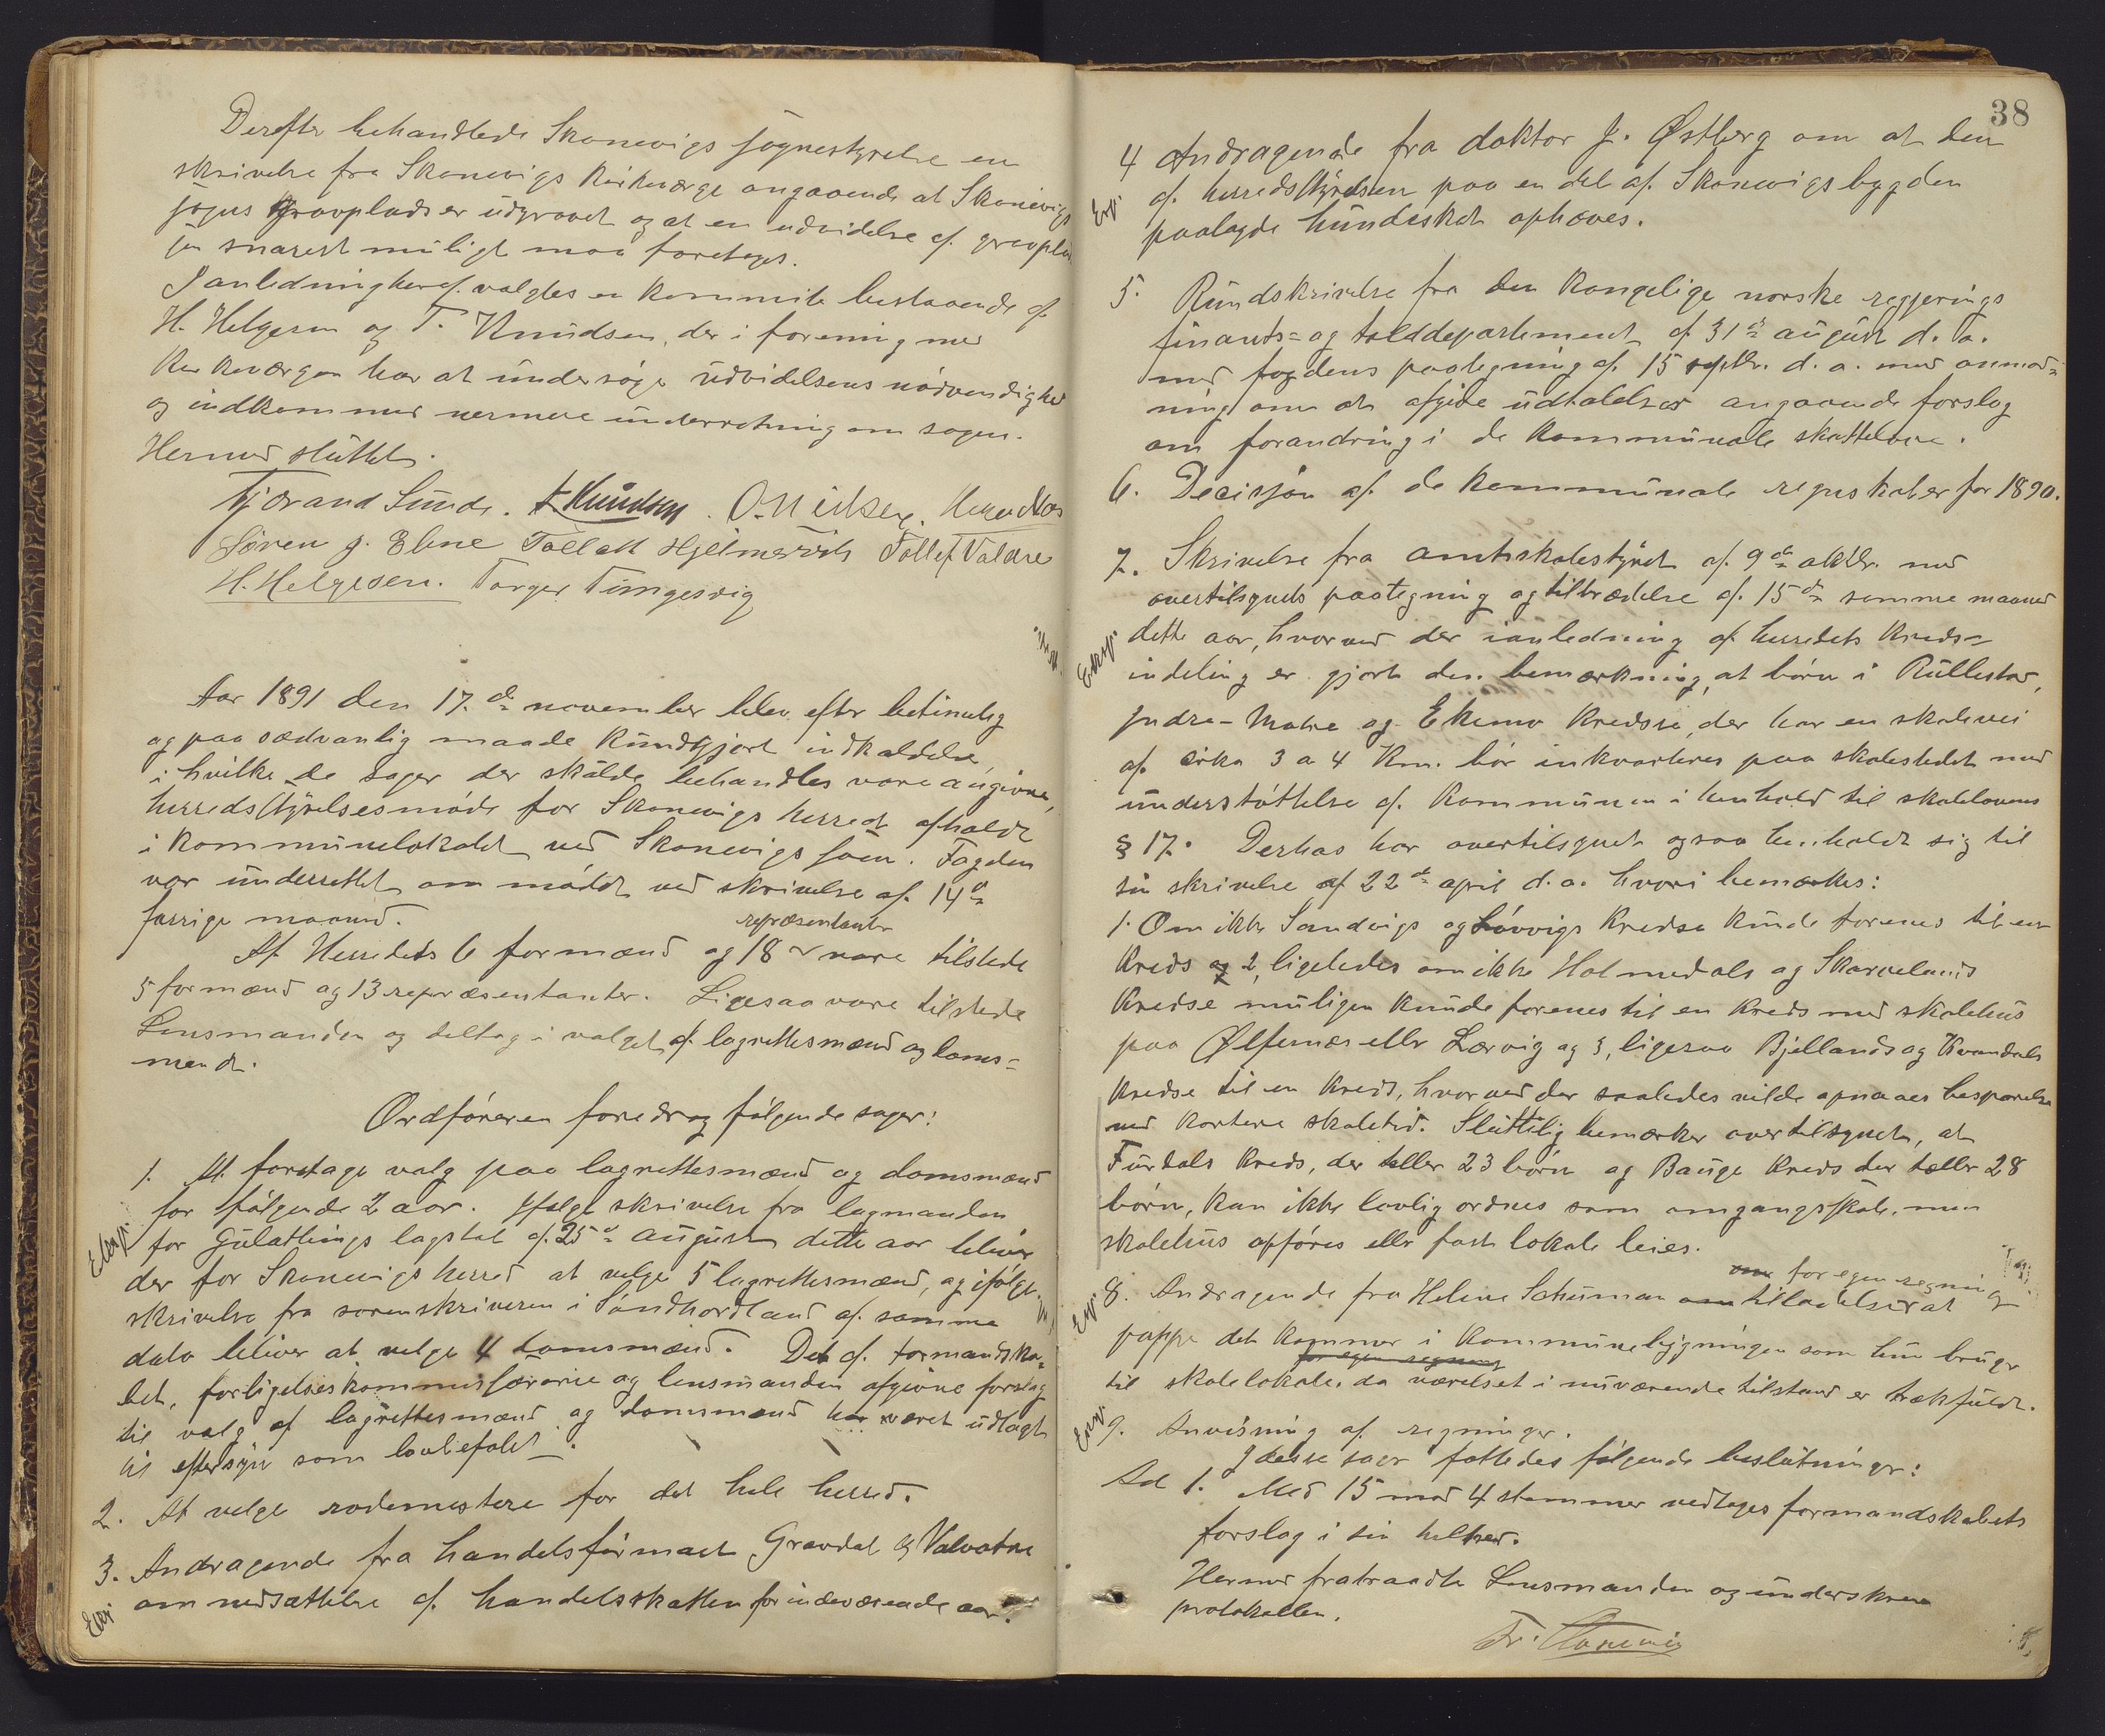 Derefter behandlede Skonevigs sognestyrelse en
skrivelse fra Skonevigs Kirkeværge angaaende at Skonevigs
sogns gravplads er udgravet og at en udvidelse af gravplad
sen snarest muligt maa foretages.
I anledning heraf valgtes en kommite bestaaende af
H. Helgesen og T. Knudsen, der i forening med
Kirkeværgen har at undersøge udvidelsens nødvendighed
og indkommer nermere underretning om sagen.
Hermed sluttet.
Tjørand Sunde. T Knudsen. O. Milsen.
Søren J. Ebne Tollak Hjelmervik Tollef Valdre
H. Helgesen. Torger Tungesvig
Aar 1891 den 17.de november blev efter betimelig
og paa sædvanlig maade kundgjort indkaldelse,
i hvilke de sager der skulde behandles vare angivne,
herredsstyrelsesmøde for Skonevigs herred afholdt
i kommunelokalet ved Skonevigs søen. Fogden
var underrettet om mødet ved skrivelse af 14de
forrige maaned.
repræsentanter
Af Herredets 6 formænd og 18 vare tilstede
5 formænd og 13 repræsentanter. Ligesaa vare tilstede
Lensmanden og deltog i valget af lagrettesmænd og doms=
mænd.
Ordføreren foredrog følgende sager:
1. At foretage valg paa lagrettesmænd og domsmænd
for følgende 2 aar. Ifølge skrivelse fra lagmanden
Exp.
for Gulathings lagstol af 25de august dette aar bliver
der for Skonevigs herred at velge 5 lagrettesmænd, og ifølge
skrivelse fra sorenskriveren i Søndhordland af samme
dato bliver at velge 4 domsmænd. Det af formandska=
bet, forligelseskommissærerne og lensmanden afgivne forslag
til valg af lagrettesmænd og domsmænd har været udlagt
til eftersyn som lovbefalet.
2. At velge rodemestere for det hele herred.
3. Andragende fra handelsfirmaet Gravdal & Valvatne
Exp.
om nedsættelse af handelsskatten for indeværende aar.
38
4 Andragende fra doktor J. Østberg om at den
Exp.
af herredsstyrelsen paa en del af Skonevigsbygden
paalagde hundeskat ophæves.
5. Rundskrivelse fra den kongelige norske regjerings
finants= og tolddepartement af 31te august d. a.
med fogdens paategning af 15 septbr. d. a. med anmod=
ning om at afgive udtalelser angaaende forslag
om forandring i de kommunale skattelove.
6. Decisjon af de kommunale regnskaber for 1890.
7. Skrivelse fra amtsskolestyret af 9de oktbr. med
overtilsynets paategning og tiltrædelse af 15de samme maaned
Eksp.
dette aar, hvorved der i anledning af herredets kreds=
indeling er gjort den bemærkning, at børn i Rullestad,
Indre-Matre og Ekemo Kredse, der har en skolevei
af cirka 3 a 4 Km. bør inkvarteres paa skolestedet med
understøttelse af kommunen i henhold til skolelovens
§ 17. Derhos har overtilsynet ogsaa henholdt sig til
sin skrivelse af 22de april d. a. hvori bemærkes:
1. Om ikke Sandvigs og Løvvigs Kredse kunde forenes til en
Kreds og 2, ligeledes om ikke Holmedals og Skarvelands
Kredse muligen kunde forenes til en kreds med skolehus
paa Ølfernæs eller Lærvig og 3, ligesaa Bjellands og Kvandals
Kredse til en Kreds, hvorved der saaledes vilde opnaaes besparelse
ved kortere skoletid. Sluttelig bemærker overtilsynet, at
Furdals Kreds, der tæller 23 børn og Bauge Kreds der tæller 28
børn, kan ikke lovlig ordnes som omgangsskole, men
skolehus opføres eller fast lokale leies.
om for egen regning
Exp.
8. Andragende fra Helene Schuman om tilladelse at
pappe det kammer i kommunebygningen som hun bruger
for egen regning
til skolelokale, da værelset i nuværende tilstand er trækfuldt.
Exp.
9. Anvisning af regninger.
I disse sager fattedes følgende beslutninger:
Ad 1. Med 15 mod 4 stemmer vedtoges formandskabets
forslag i sin helhed.
Hermed fratraadte Lensmanden og underskrev
protokollen.